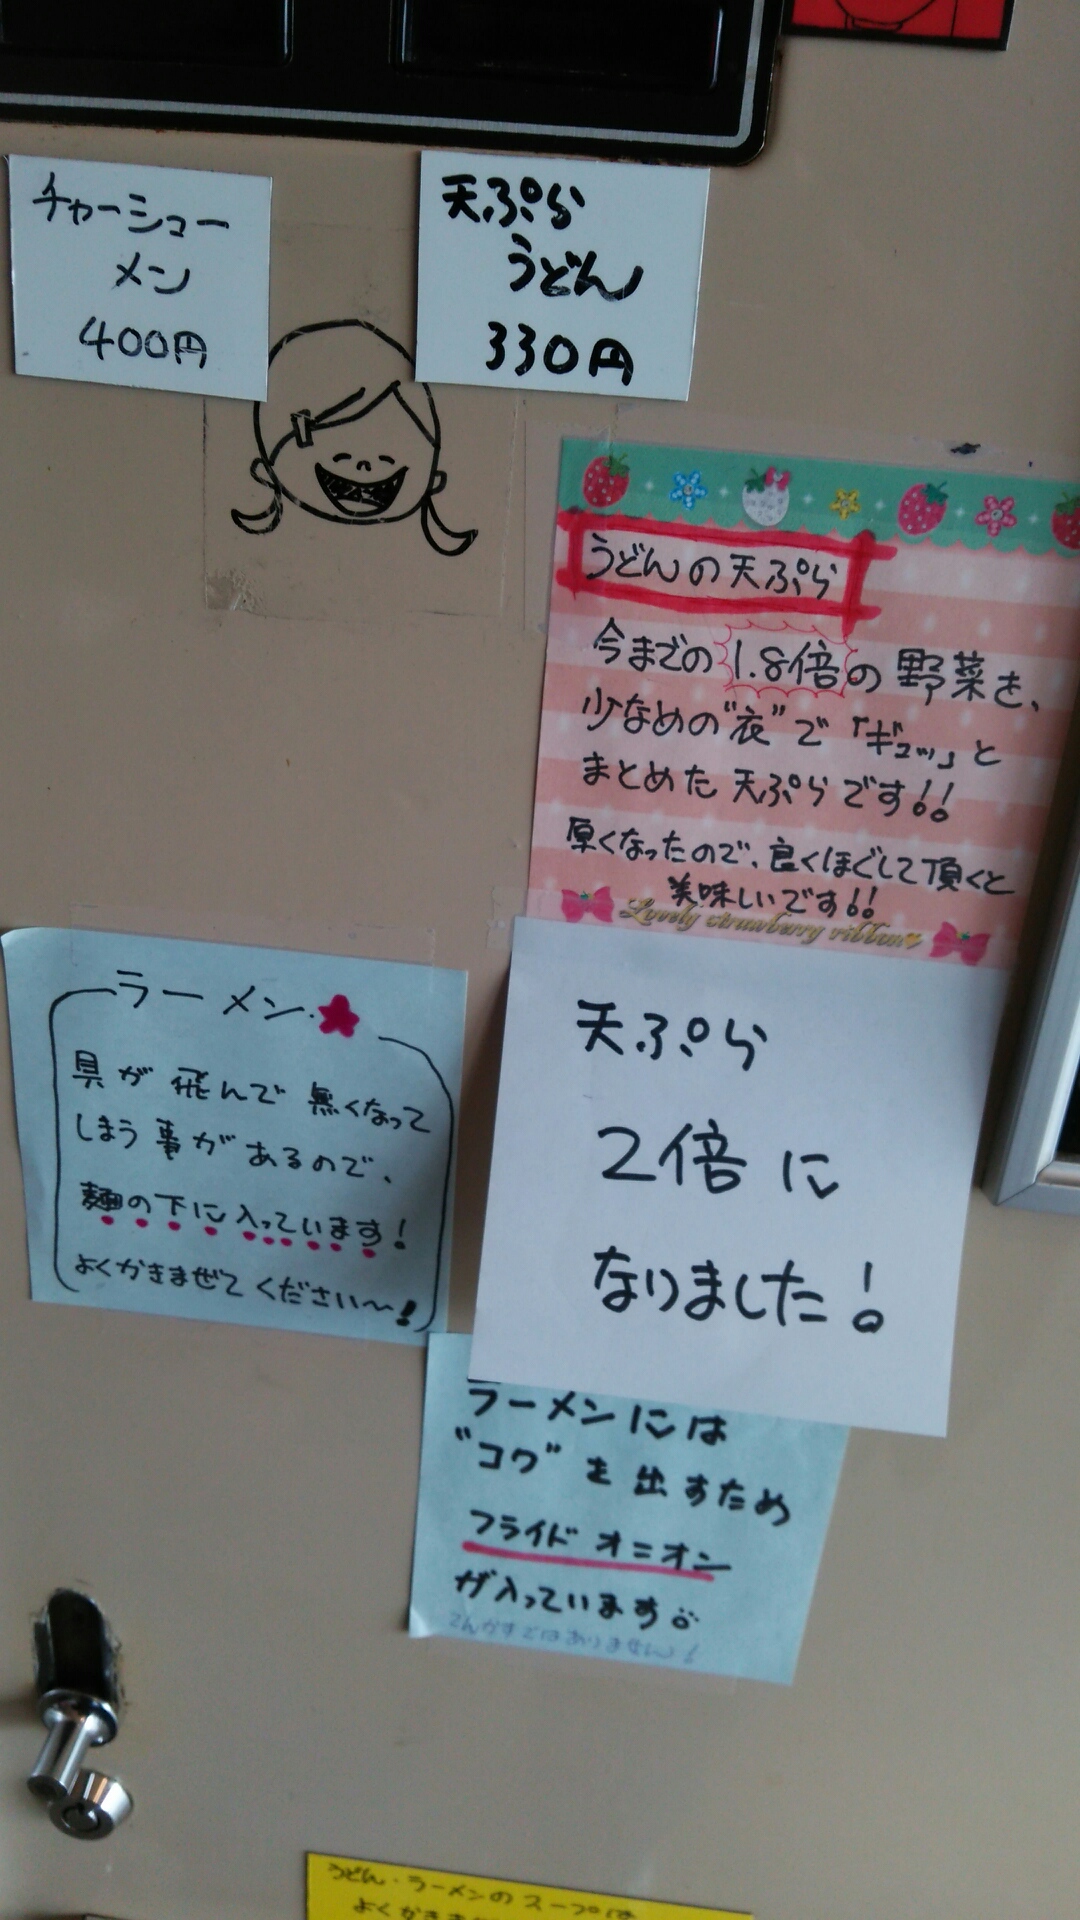 チャーシュー
メン
400円
天ぷら
うどん
330円
うどんの天ぷら
今までの1.8倍の野菜を、
少なめの"衣"で「ギュッ」と
まとめた天ぷらです!!
厚くなったので、良くほぐして頂くと
美味しいです!!
Lovely strawberry ribbon
ラーメン
具が飛んで無くなって
しまう事があるので、
麺の下に入っています!
よくかきまぜてください〜!
天ぷら
2倍に
なりました!
ラーメンには
"コク"を出すため
フライドオニオン
が入っています
てんかすではありません!
うどん・ラーメンのスープは
よくかきま